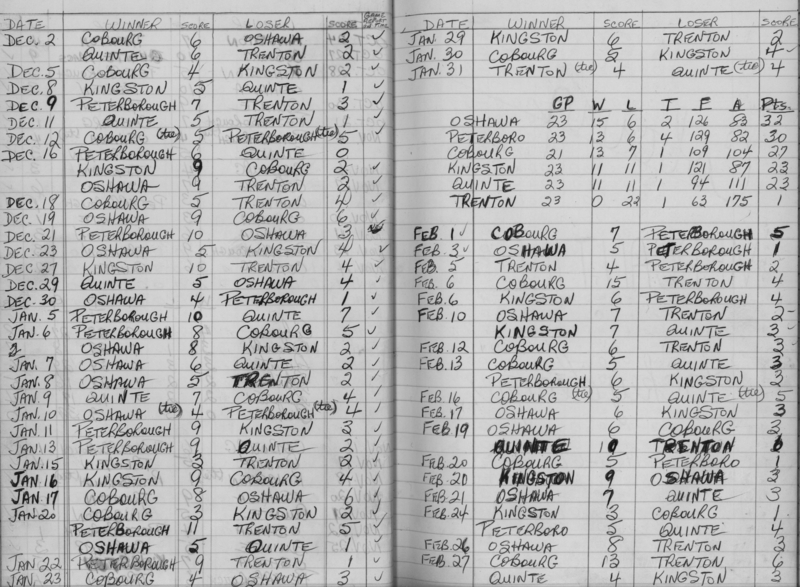 DATE WINNER SCORE LOSER SCORE
DEC. 2 COBOURG 6 OSHAWA 2 ✓
QUINTE 6 TRENTON 2 ✓
DEC. 5 COBOURG 4 KINGSTON 2 ✓
DEC. 8 KINGSTON 5 QUINTE 1 ✓
DEC. 9 PETERBOROUGH 7 TRENTON 3 ✓
DEC. 11 QUINTE 5 TRENTON 1 ✓
DEC. 12 COBOURG (tie) 5 PETERBOROUGH (tie) 5 ✓
DEC. 16 PETERBOROUGH 6 QUINTE 0
KINGSTON 9 COBOURG 2 ✓
OSHAWA 9 TRENTON 2 ✓
DEC. 18 COBOURG 5 TRENTON 4 ✓
DEC. 19 OSHAWA 9 COBOURG 6 ✓
DEC. 21 PETERBOROUGH 10 OSHAWA 3
DEC. 23 OSHAWA 5 KINGSTON 4 ✓
DEC. 27 KINGSTON 10 TRENTON 4 ✓
DEC. 29 QUINTE 5 OSHAWA 4 ✓
DEC. 30 OSHAWA 4 PETERBOROUGH 1 ✓
JAN. 5 PETERBOROUGH 10 QUINTE 7 ✓
JAN. 6 PETERBOROUGH 8 COBOURG 5 ✓
OSHAWA 8 KINGSTON 2 ✓
JAN. 7 OSHAWA 6 QUINTE 2 ✓
JAN. 8 OSHAWA 5 TRENTON 2 ✓
JAN. 9 QUINTE 7 COBOURG 4 ✓
JAN. 10 OSHAWA (tie) 4 PETERBOROUGH (tie) 4 ✓
JAN. 11 PETERBOROUGH 9 KINGSTON 3 ✓
JAN. 13 PETERBOROUGH 9 QUINTE 2 ✓
JAN. 15 KINGSTON 3 TRENTON 2 ✓
JAN. 16 KINGSTON 9 COBOURG 4 ✓
JAN. 17 COBOURG 8 OSHAWA 6 ✓
JAN. 20 COBOURG 3 KINGSTON 2 ✓
PETERBOROUGH 11 TRENTON 5 ✓
OSHAWA 5 QUINTE 1 ✓
JAN. 22 PETERBOROUGH 9 TRENTON 1 ✓
JAN. 23 COBOURG 4 OSHAWA 3 ✓
DATE WINNER SCORE LOSER SCORE
JAN. 29 KINGSTON 6 TRENTON 2
JAN. 30 COBOURG 5 KINGSTON 4
JAN. 31 TRENTON (tie) 4 QUINTE (tie) 4
GP W L T F A Pts.
OSHAWA 23 15 6 2 126 83 32
PETERBORO 23 13 6 4 129 82 30
COBOURG 21 13 7 1 109 104 27
KINGSTON 23 11 11 1 121 87 23
QUINTE 23 11 11 1 94 111 23
TRENTON 23 0 22 1 63 175 1
FEB. 1 ✓ COBOURG 7 PETERBOROUGH 5
FEB. 3 ✓ OSHAWA 5 PETERBOROUGH 1
FEB. 5 TRENTON 4 PETERBOROUGH 2
FEB. 6 COBOURG 15 TRENTON 4
FEB. 6 KINGSTON 6 PETERBOROUGH 4
FEB. 10 OSHAWA 7 TRENTON 2
KINGSTON 7 QUINTE 3
FEB. 12 COBOURG 6 TRENTON 3
FEB. 13 COBOURG 5 QUINTE 3
PETERBOROUGH 6 KINGSTON 2
FEB. 16 COBOURG (tie) 5 QUINTE (tie) 5
FEB. 17 OSHAWA 6 KINGSTON 3
FEB. 19 OSHAWA 6 COBOURG 3
QUINTE 10 TRENTON 6
FEB. 20 COBOURG 5 PETERBORO 1
FEB. 20 KINGSTON 9 OSHAWA 2
FEB. 21 OSHAWA 7 QUINTE 3
FEB. 24 KINGSTON 3 COBOURG 1
PETERBORO 5 QUINTE 4
FEB. 26 OSHAWA 8 TRENTON 3
FEB. 27 COBOURG 13 TRENTON 6
QUINTE 4 KINGSTON 3